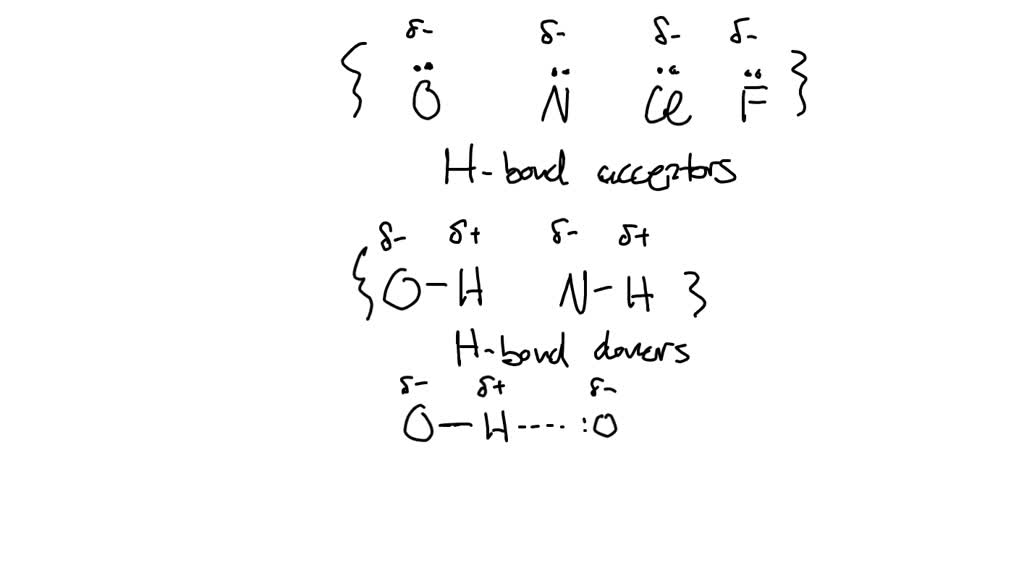 δ- δ- δ- δ-
{ Ö N̈ C̈l F̈ }
H-bond acceptors
δ- δ+ δ- δ+
{ O-H N-H }
H-bond donors
δ- δ+ δ-
O-H····:O